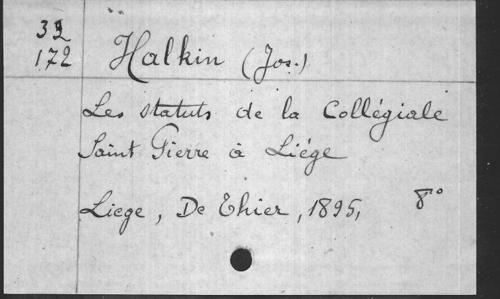 32
172
Halkin (Jos.)
Les statuts de la Collégiale
Saint Pierre à Liége
Liege, De Thier, 1895, 8°